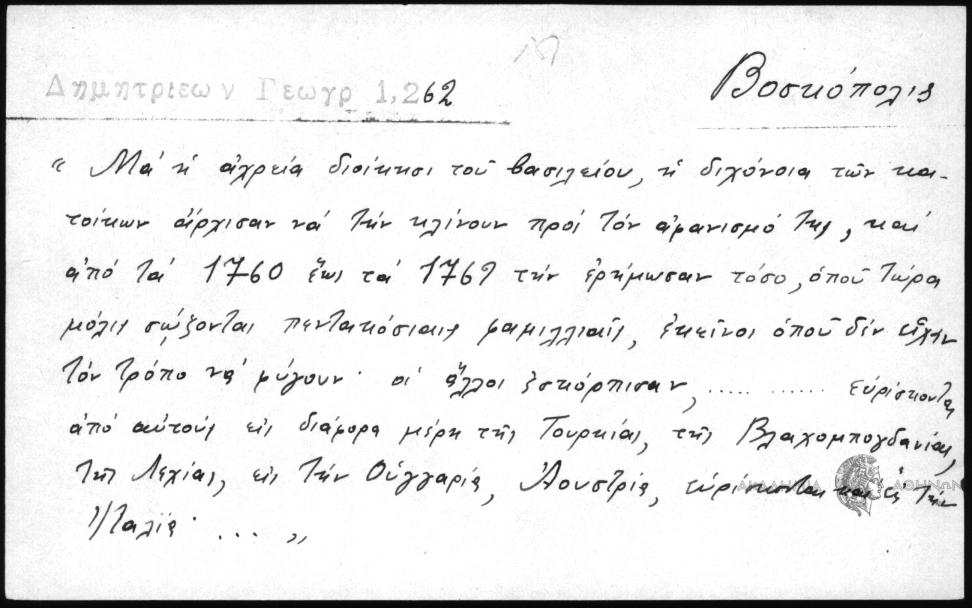 Δημητριεων Γεωγρ 1,262
Βοσκόπολις
« Μά ἡ ἀχρεία διοίκησι τοῦ βασιλείου, ἡ διχόνοια τῶν κα-
τοίκων ἄρχισαν νά τήν κλίνουν πρός τόν ἀφανισμό της, καί
ἀπό τά 1760 ἕως τά 1769 τήν ἐρήμωσαν τόσο, ὁποῦ τώρα
μόλις σώζονται πεντακόσιαις φαμιλλιαῖς, ἐκεῖνοι ὁποῦ δέν εἶχαν
τόν τρόπο νά φύγουν· οἱ ἄλλοι ἐσκόρπισαν, ..... ...... εὑρίσκονται
ἀπό αὐτούς εἰς διάφορα μέρη τῆς Τουρκίας, τῆς Βλαχομπογδανίας,
τῆς Λεχίας, εἰς τήν Οὐγγαρία, Ἀουστρία, εὑρίσκονται και εἰς τήν
Ἰταλία· ... »
ΑΚΑΔΗΜΙΑ ΑΘΗΝΩΝ